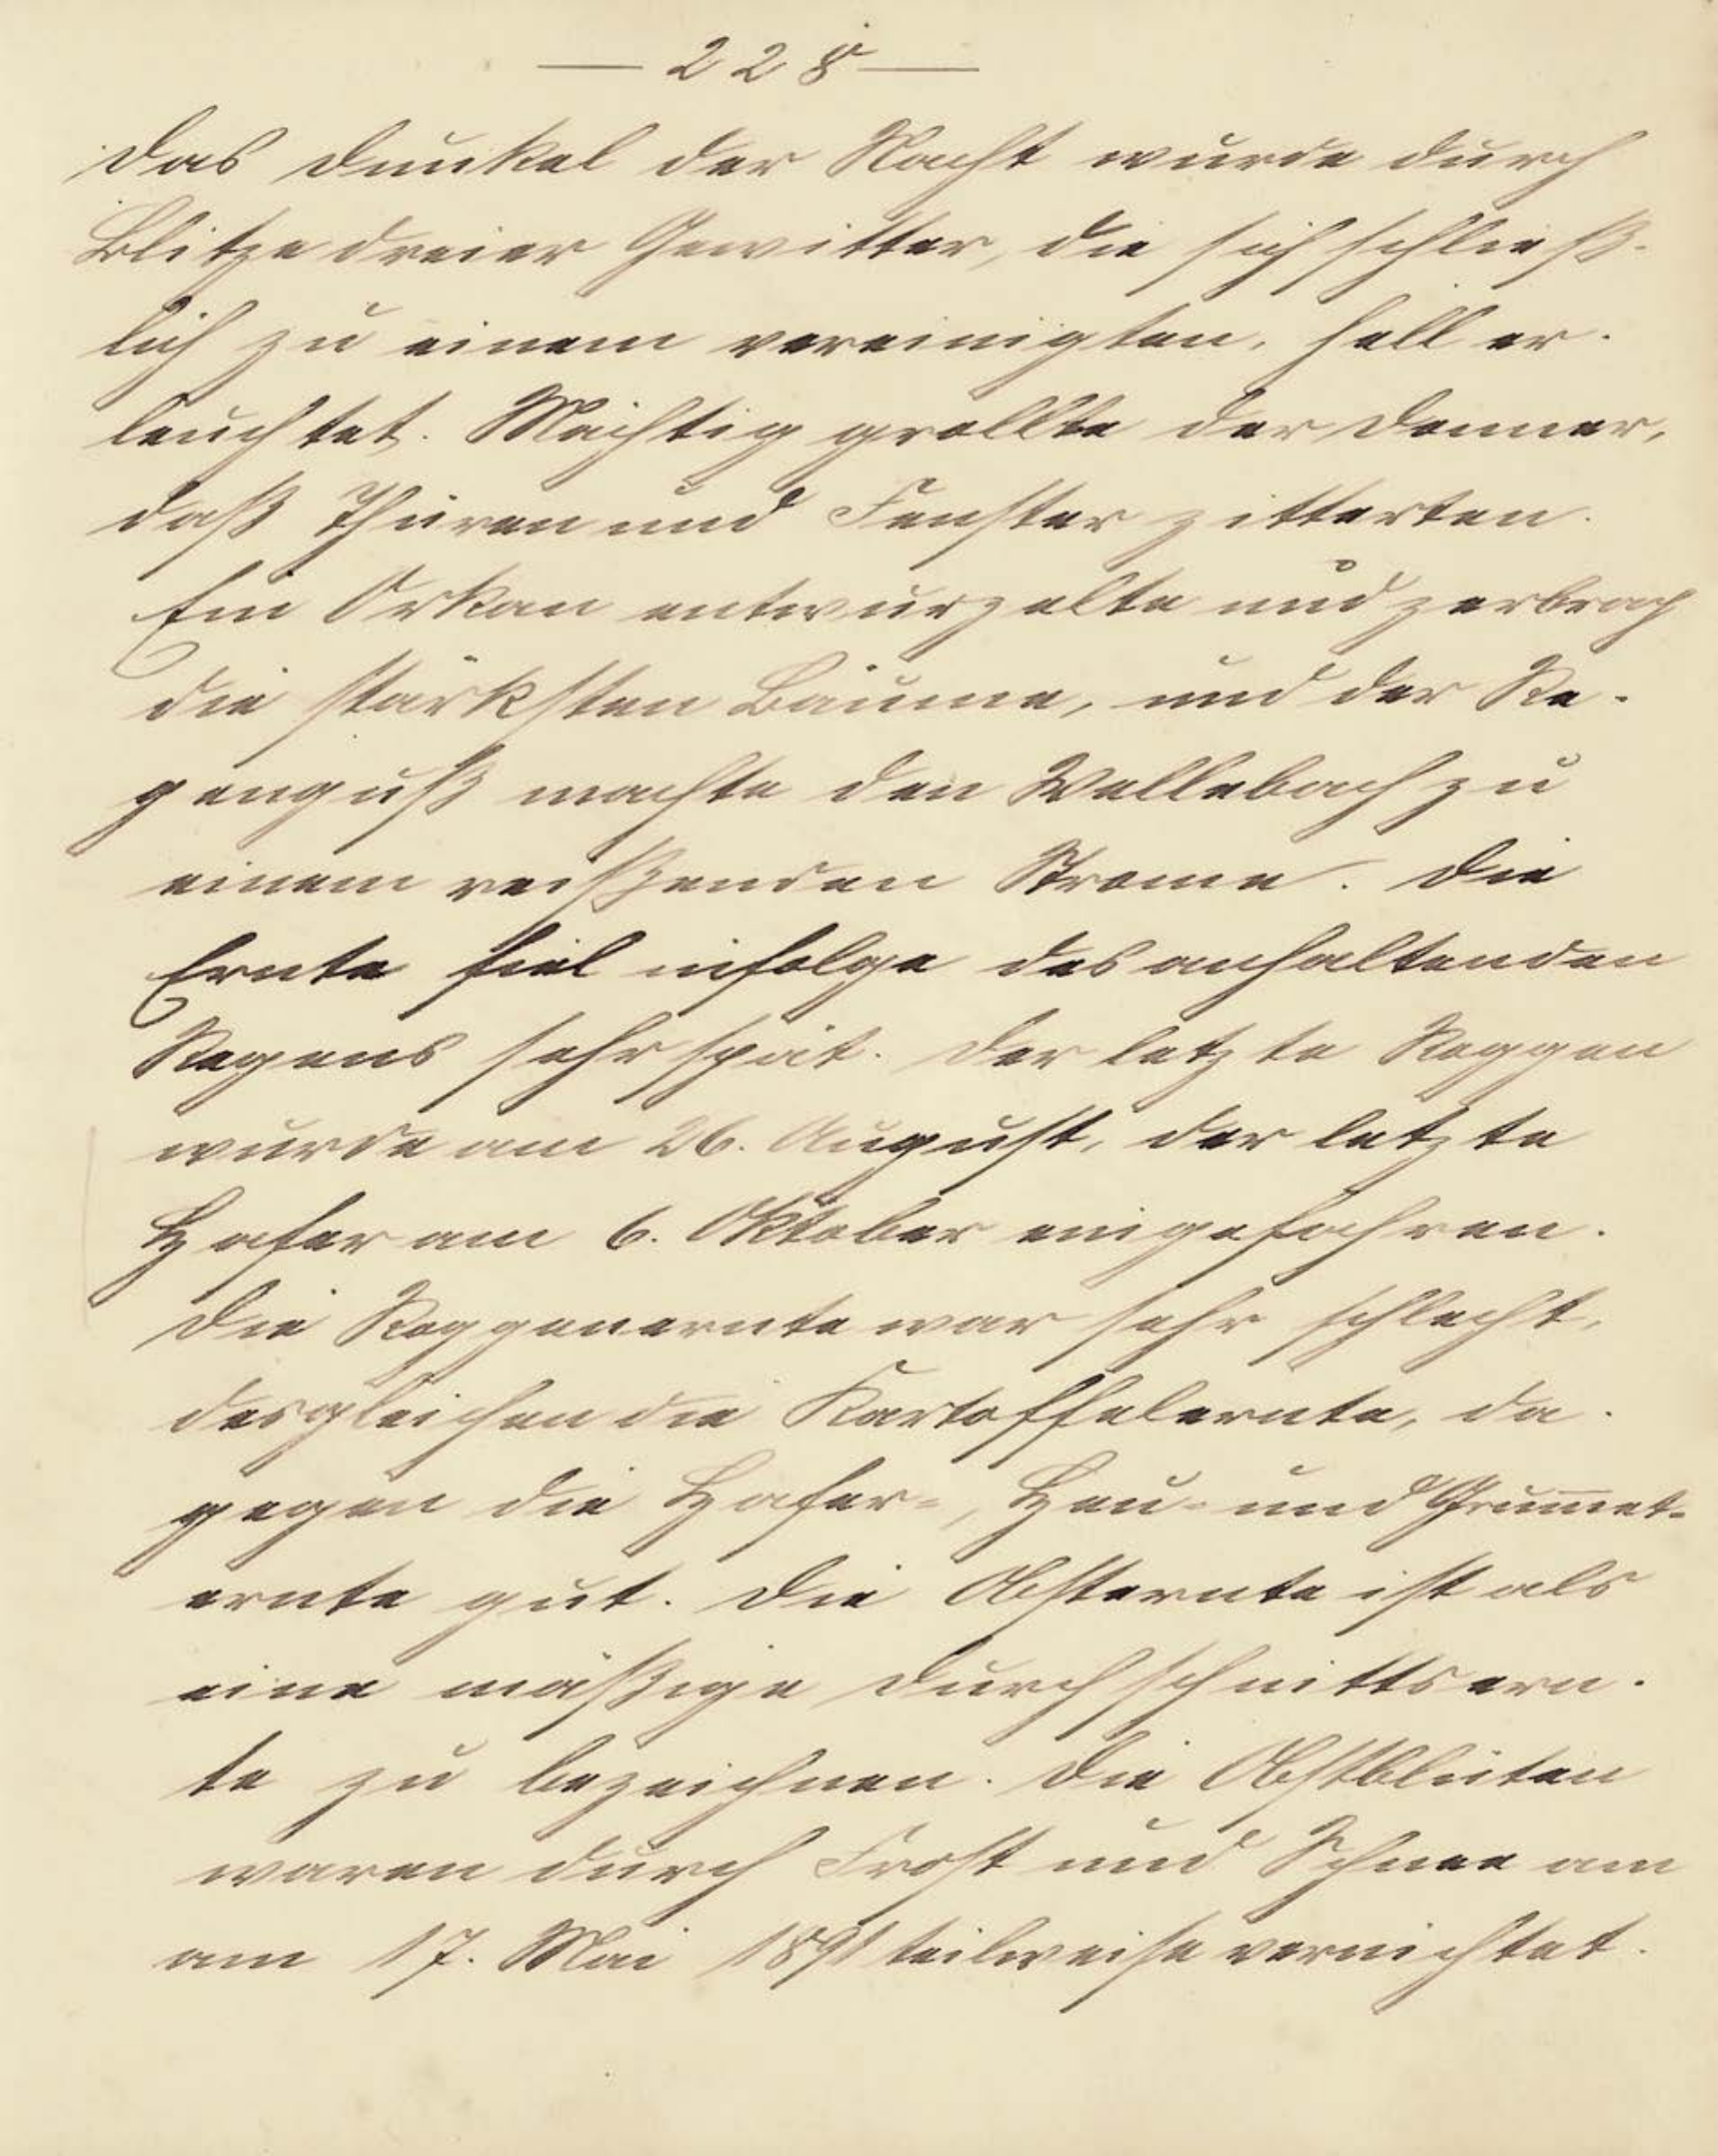 — 228 —
Das Dunkel der Nacht wurde durch
Blitze dreier Gewitter, die sich schließ-
lich zu einem vereinigten, hell er-
leuchtet. Mächtig grollte der Donner,
daß Thüren und Fenster zitterten.
Ein Orkan entwurzelte und zerbrach
die stärksten Bäume, und der Re-
genguß machte den Wellebach zu
einem reißenden Strome. Die
Ernte fiel infolge des anhaltenden
Regens sehr spät. Der letzte Roggen
wurde am 26. August, der letzte
Hafer am 6. Oktober eingefahren.
Die Roggenernte war sehr schlecht,
desgleichen die Kartoffelernte, da-
gegen die Hafer-, Heu- und Grum̄et-
ernte gut. Die Obsternte ist als
eine mäßige Durchschnittsern-
te zu bezeichnen. Die Obstblüten
waren durch Frost und Schnee am
am 17. Mai 1891 teilweise vernichtet.